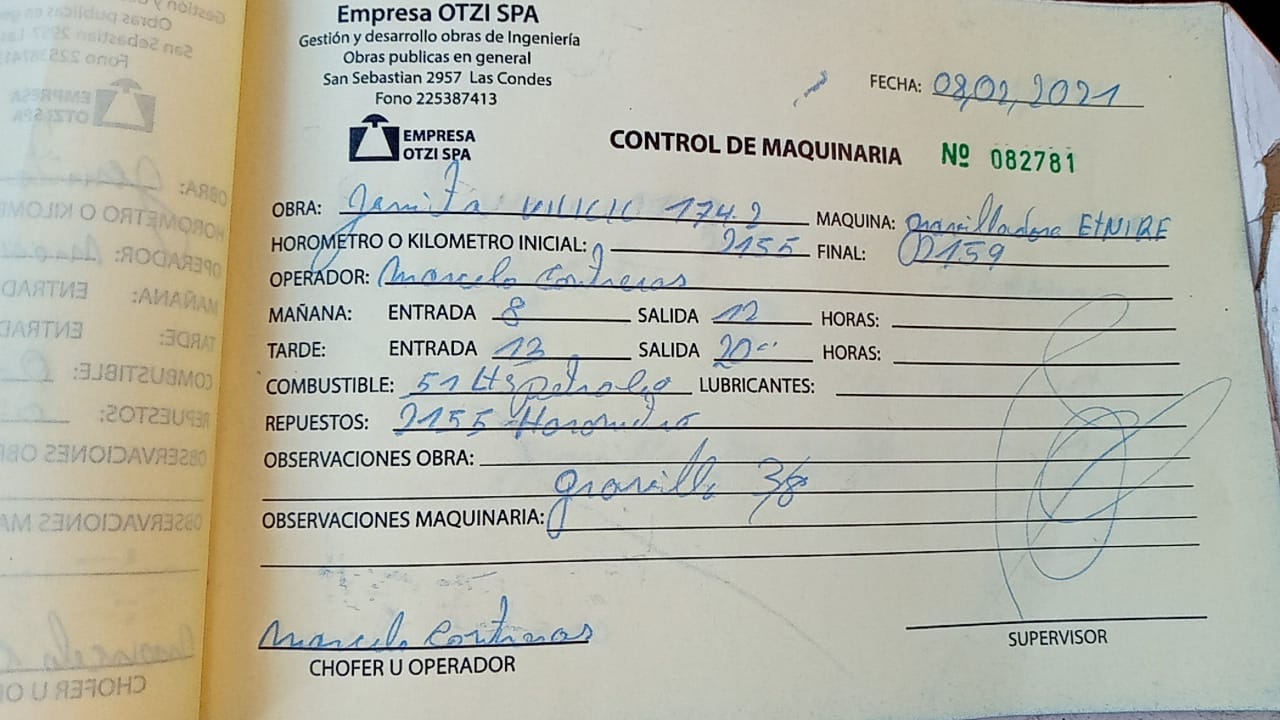 Empresa OTZI SPA
Gestión y desarrollo obras de Ingeniería
Obras publicas en general
San Sebastian 2957 Las Condes
Fono 225387413
FECHA: 08,02,2021
EMPRESA
OTZI SPA
CONTROL DE MAQUINARIA Nº 082781
OBRA: 174.2 MAQUINA: gravilladora ETNIRE
HOROMETRO O KILOMETRO INICIAL: 2155 FINAL: 2159
OPERADOR: Marcelo Contreras
MAÑANA: ENTRADA 8 SALIDA 12 HORAS:
TARDE: ENTRADA 13 SALIDA 20 HORAS:
COMBUSTIBLE: 51 Lts petroleo LUBRICANTES:
REPUESTOS: 2155 Horometro
OBSERVACIONES OBRA:
gravilla 3/8
OBSERVACIONES MAQUINARIA:
Marcelo Contreras
CHOFER U OPERADOR
SUPERVISOR